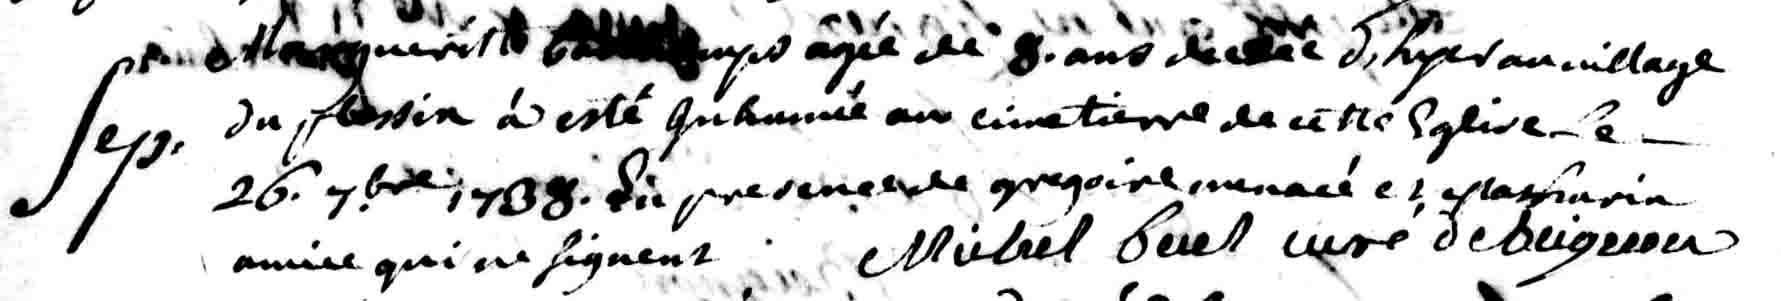 Sep.re Margueritte âgée de 8. ans decedée d'hyer au village
du plessix à esté Inhumée au cimetierre de cette Eglise Le
26. 7bre 1738. En presence de gregoire menacé et Mathurin
amice qui ne signent Michel curé de beignon